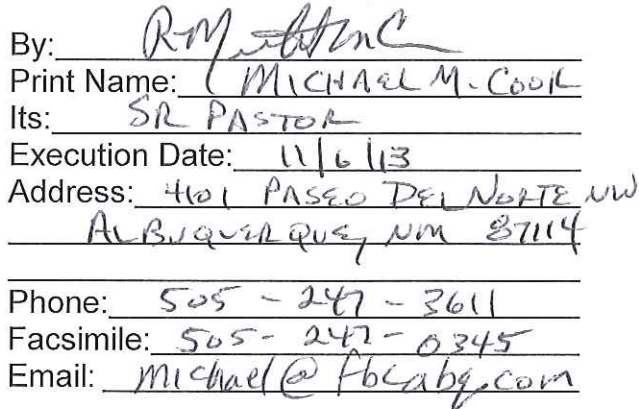 By:
Print Name: MICHAEL M. COOK
Its: SR PASTOR
Execution Date: 11/6/13
Address: 4101 PASEO DEL NORTE NW
ALBUQUERQUE, NM 87114
Phone: 505 - 247 - 3611
Facsimile: 505 - 247 - 0345
Email: michael@fbcabq.com